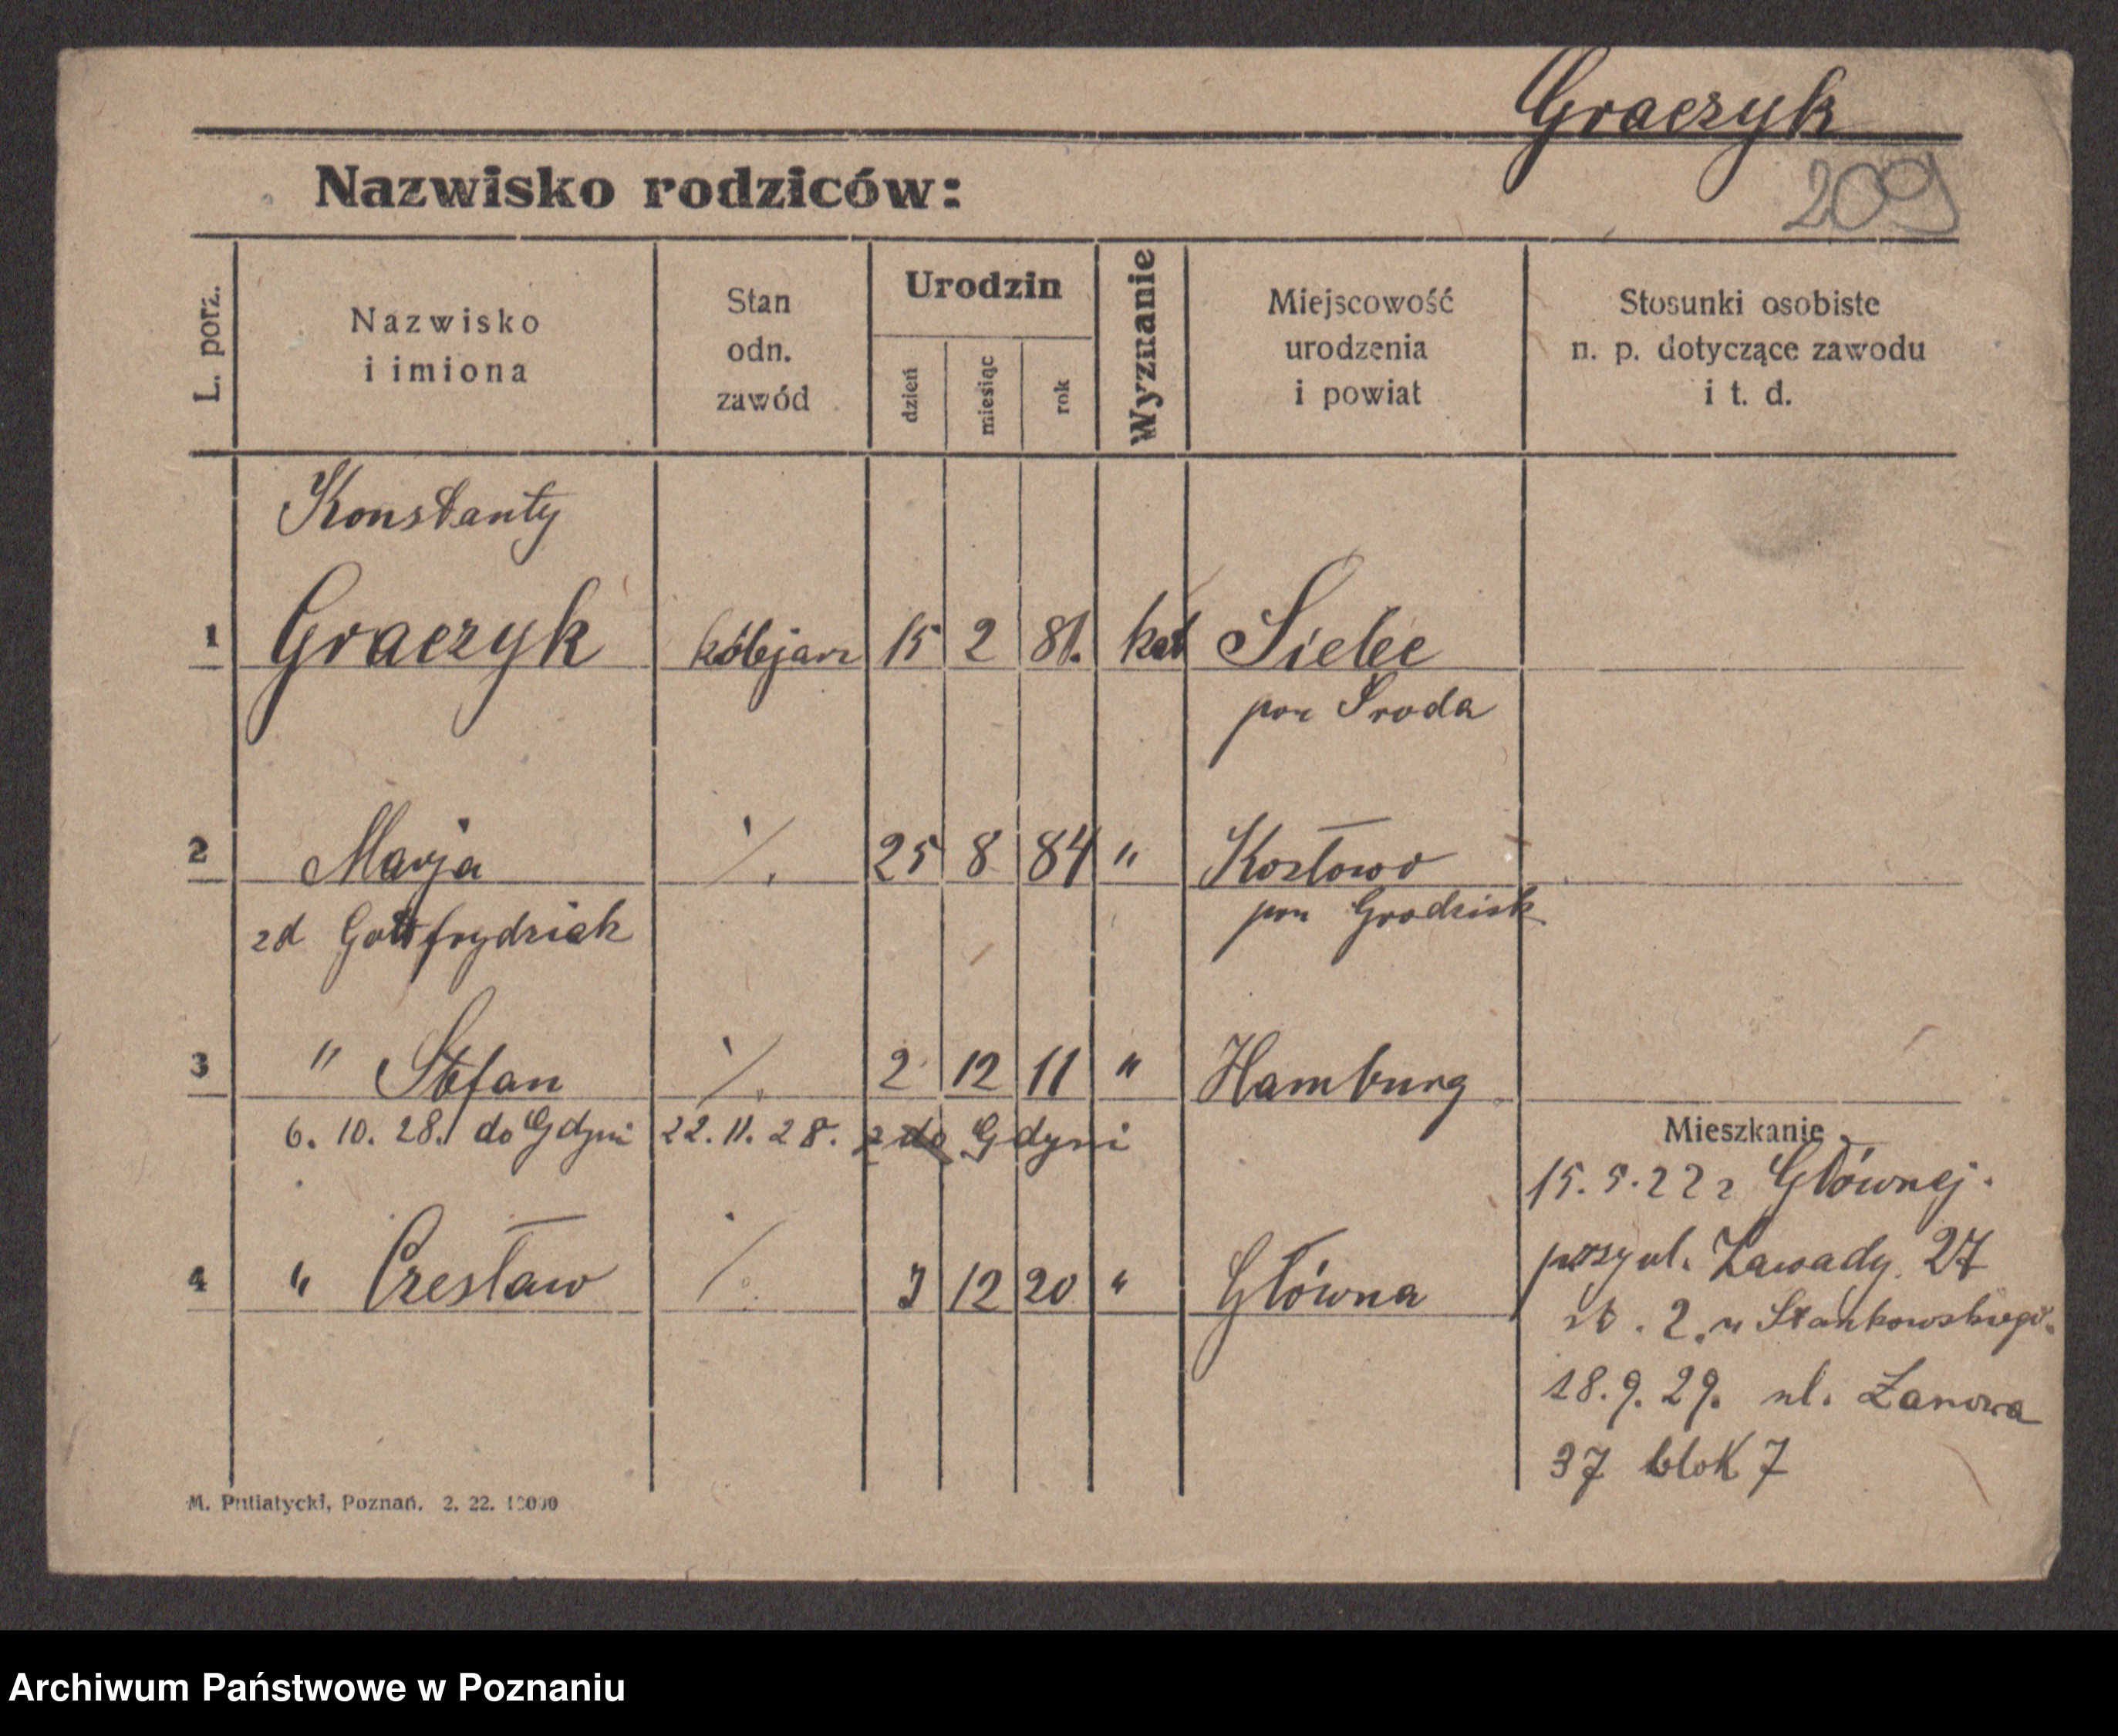 Graczyk
209
Nazwisko rodziców:
L. porz.
Nazwisko
i imiona
Stan
odn.
zawód
Urodzin
dzień
miesiąc
rok
Wyznanie
Miejscowość
urodzenia
i powiat
Stosunki osobiste
n. p. dotyczące zawodu
i t. d.
Konstanty
1 Graczyk 15 2 81. kat Sielec
pow Sroda
2 Marja ·/. 25 8 84 " Kozłowo
zd Gottfrydziak pow Grodzisk
3 " Stefan ·/. 2 12 11 " Hamburg
6. 10. 28. do Gdyni 22. 11. 28. z Gdyni
Mieszkanie
15. 5. 22 z Głównej.
przy ul. Zawady 27
4 " Czesław ·/. 12 20 " Główna
2. u Stankowskiego.
18. 9. 29. ul. Łanowa
37 blok 7
M. Putiatycki, Poznań. 2. 22. 10000
Archiwum Państwowe w Poznaniu